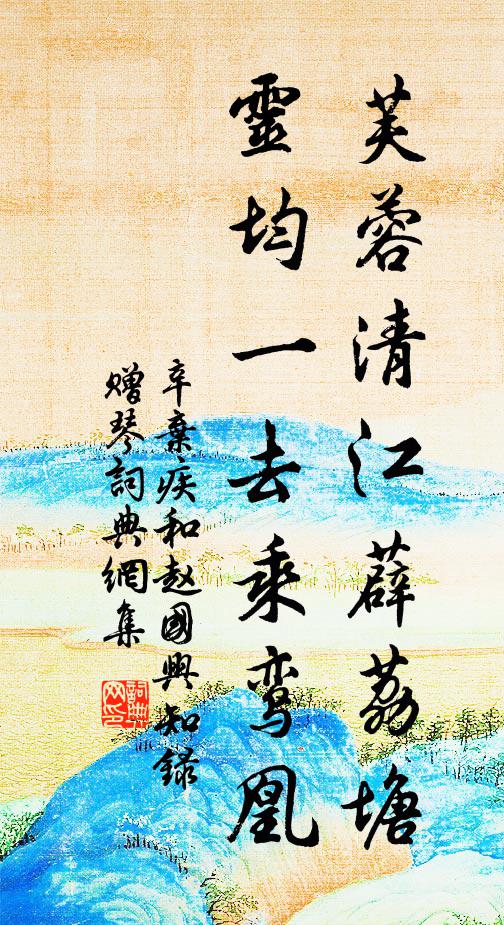 芙蓉清江薜荔塘
靈均一去乘鸾凰
辛棄疾和赵國興知録
赠琴詞典網集
詞典
网印